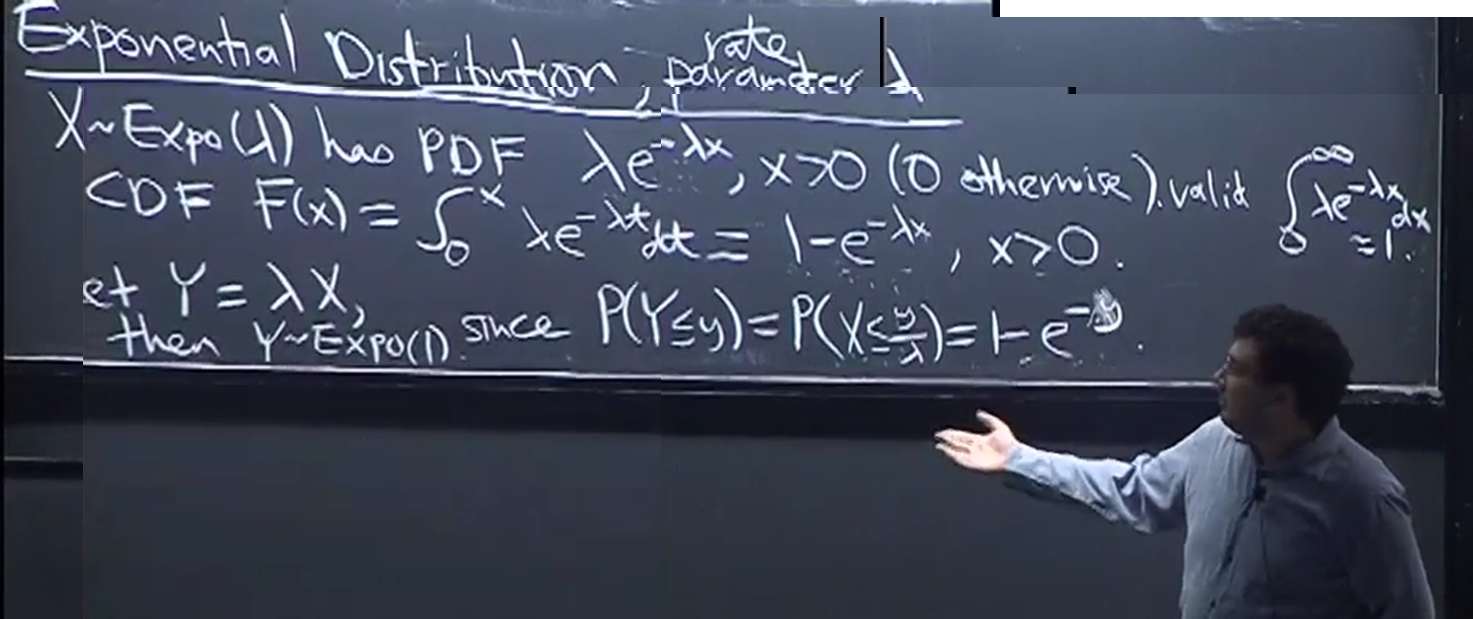 Exponential Distribution, rate parameter λ
X~Expo(λ) has PDF λe^{-λx}, x>0 (0 otherwise). valid ∫_0^∞ λe^{-λx}dx = 1.
CDF F(x) = ∫_0^x λe^{-λt}dt = 1-e^{-λx}, x>0.
et Y = λX,
then Y~Expo(1) since P(Y≤y) = P(X≤y/λ) = 1-e^{-y}.